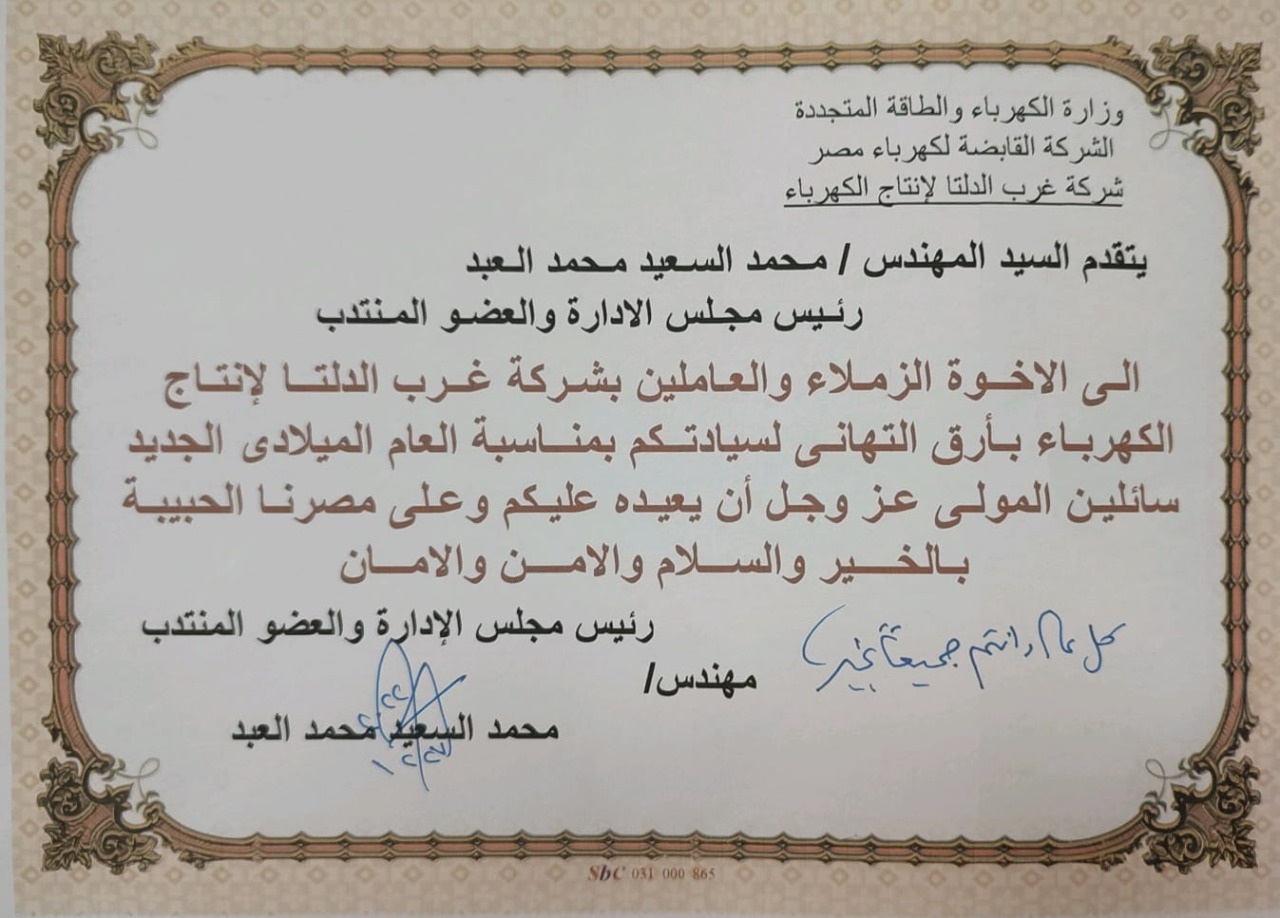 وزارة الكهرباء والطاقة المتجددة
الشركة القابضة لكهرباء مصر
شركة غرب الدلتا لإنتاج الكهرباء
يتقدم السيد المهندس / محمد السعيد محمد العبد
رئيس مجلس الادارة والعضو المنتدب
الى الاخوة الزملاء والعاملين بشركة غرب الدلتا لإنتاج
الكهرباء بأرق التهانى لسيادتكم بمناسبة العام الميلادى الجديد
سائلين المولى عز وجل أن يعيده عليكم وعلى مصرنا الحبيبة
بالخير والسلام والامن والامان
كل عام وانتم جميعاً بخير
رئيس مجلس الإدارة والعضو المنتدب
مهندس/
محمد السعيد محمد العبد
SbC 031 000 865